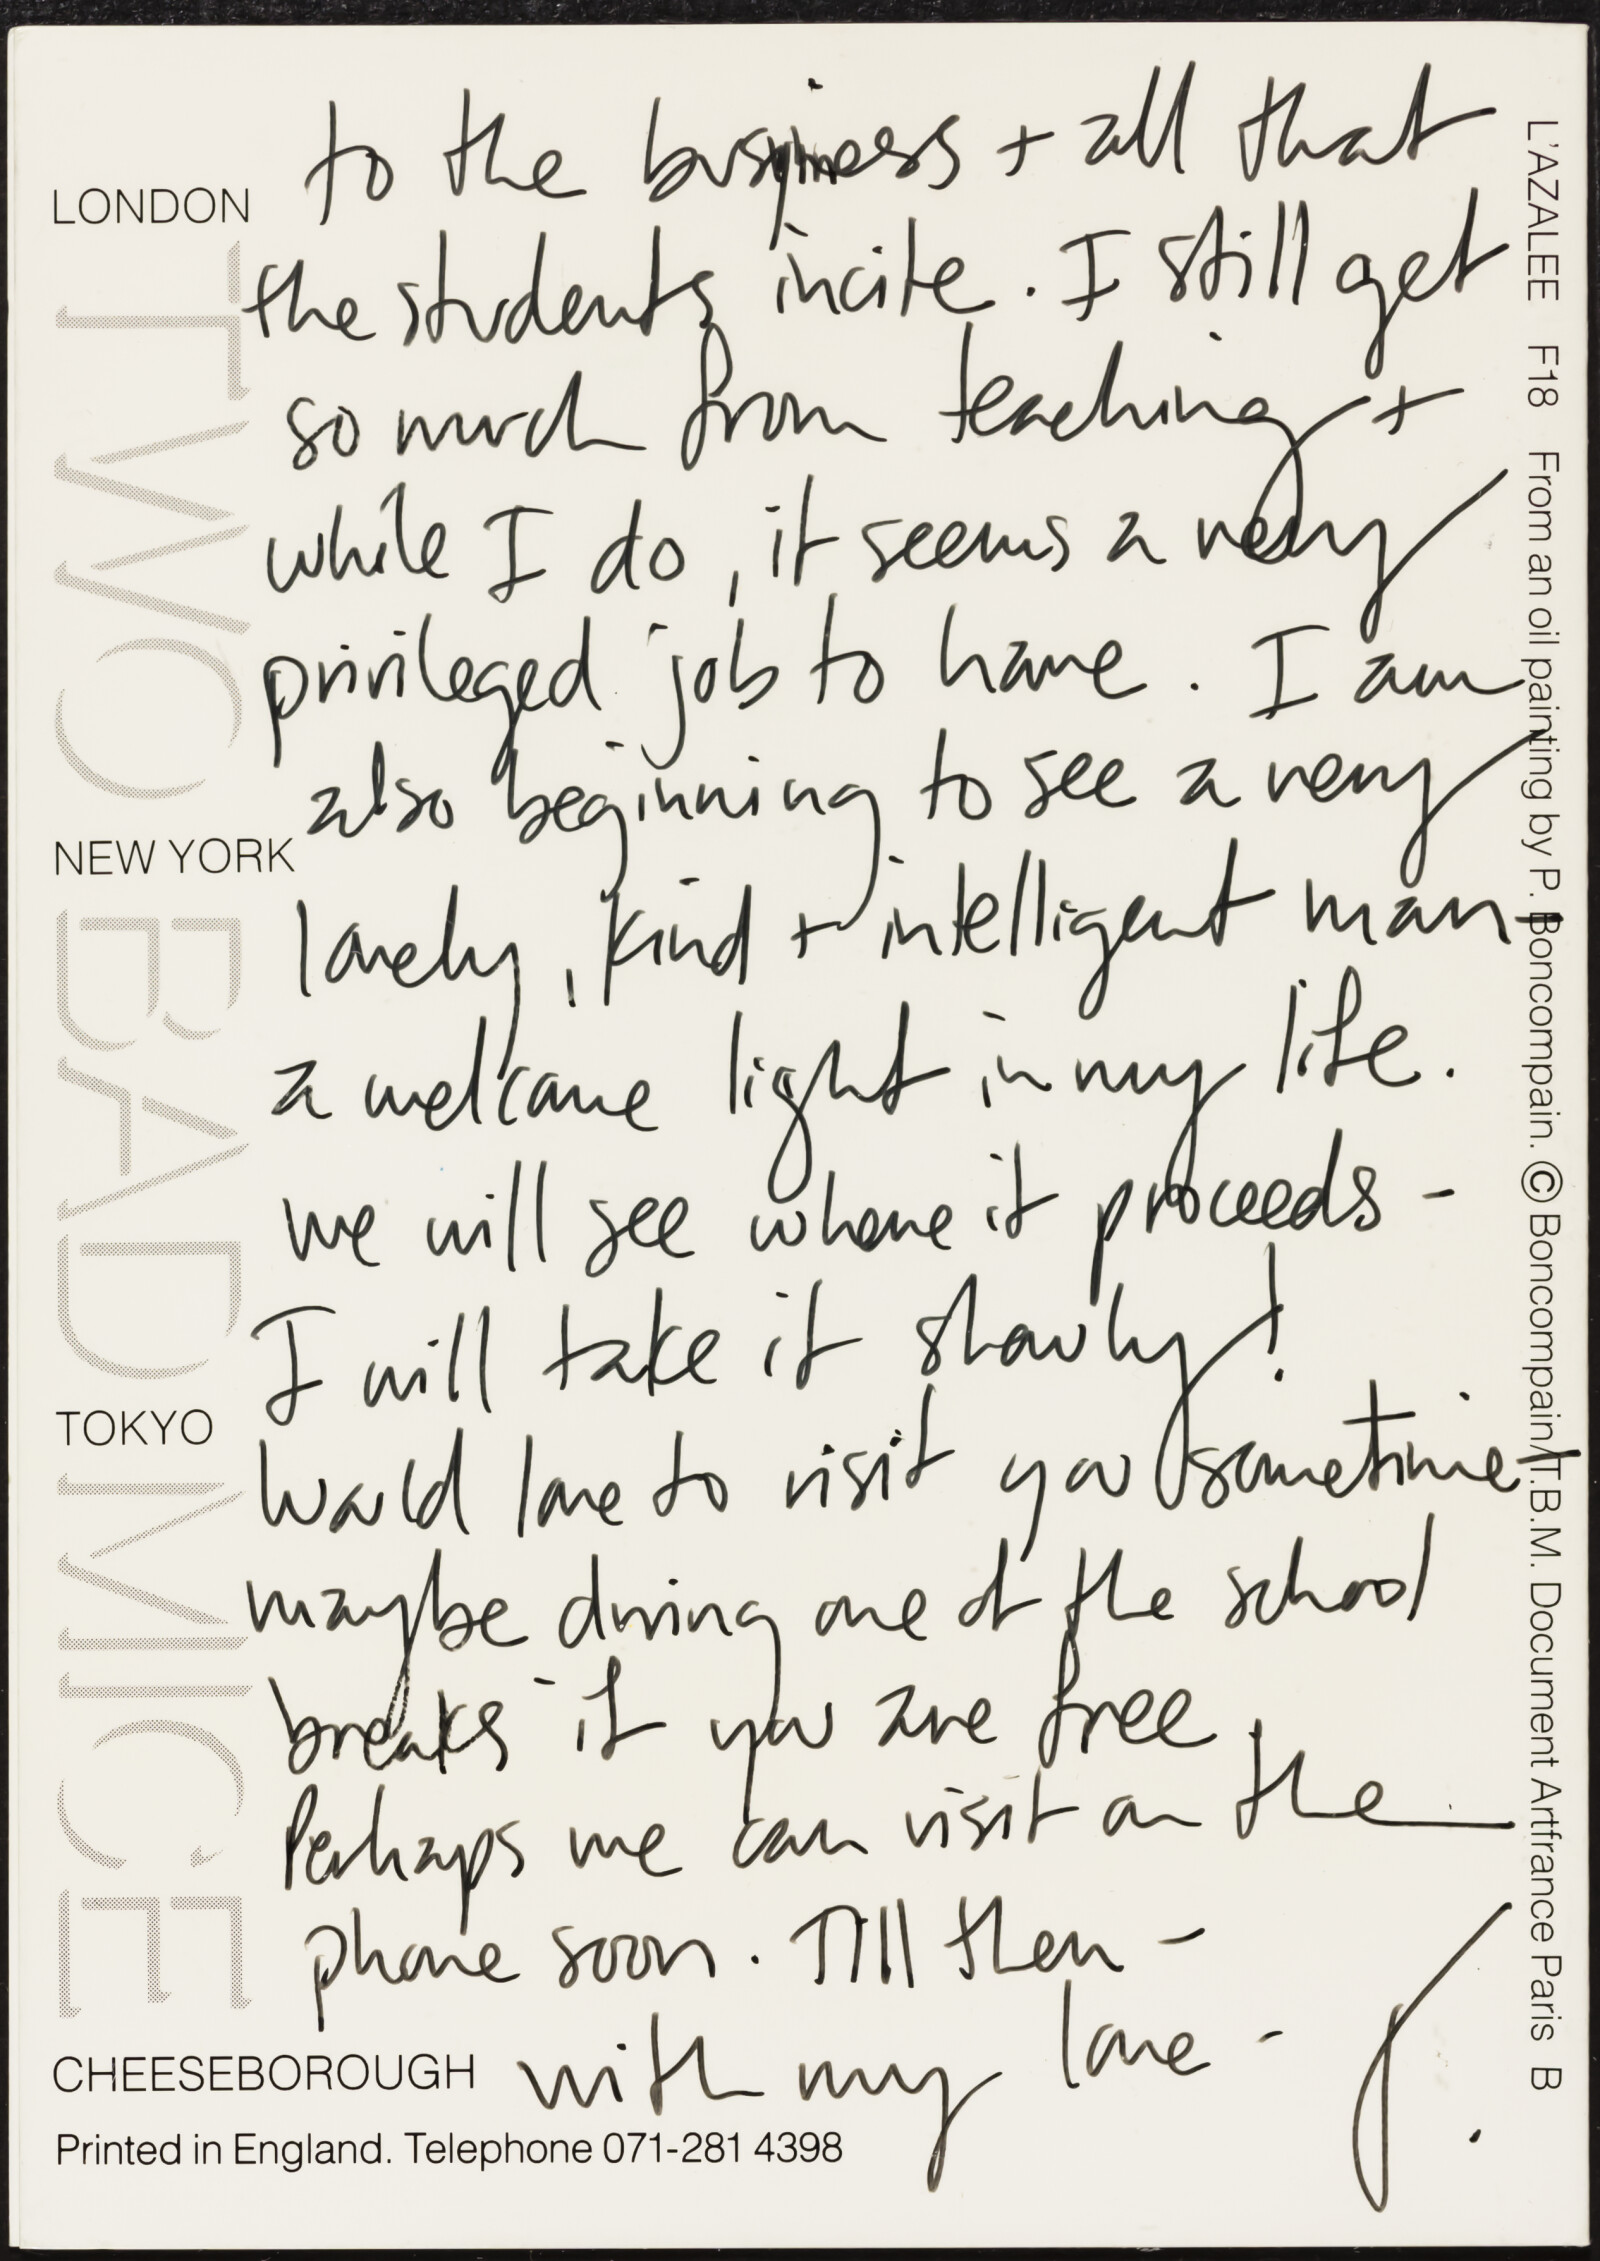 to the business + all that
the students incite. I still get
so much from teaching +
while I do, it seems a very
privileged job to have. I am
also beginning to see a very
lovely, kind + intelligent man -
a welcome light in my life.
we will see where it proceeds -
I will take it slowly!
Would love to visit you sometime -
maybe during one of the school
breaks if you are free.
Perhaps we can visit on the
phone soon. Till then -
with my love -
J.
LONDON
NEW YORK
TOKYO
CHEESEBOROUGH
TWO BAD MICE
Printed in England. Telephone 071-281 4398
L'AZALEE F18 From an oil painting by P. Boncompain. © Boncompain/T.B.M. Document Artfrance Paris B